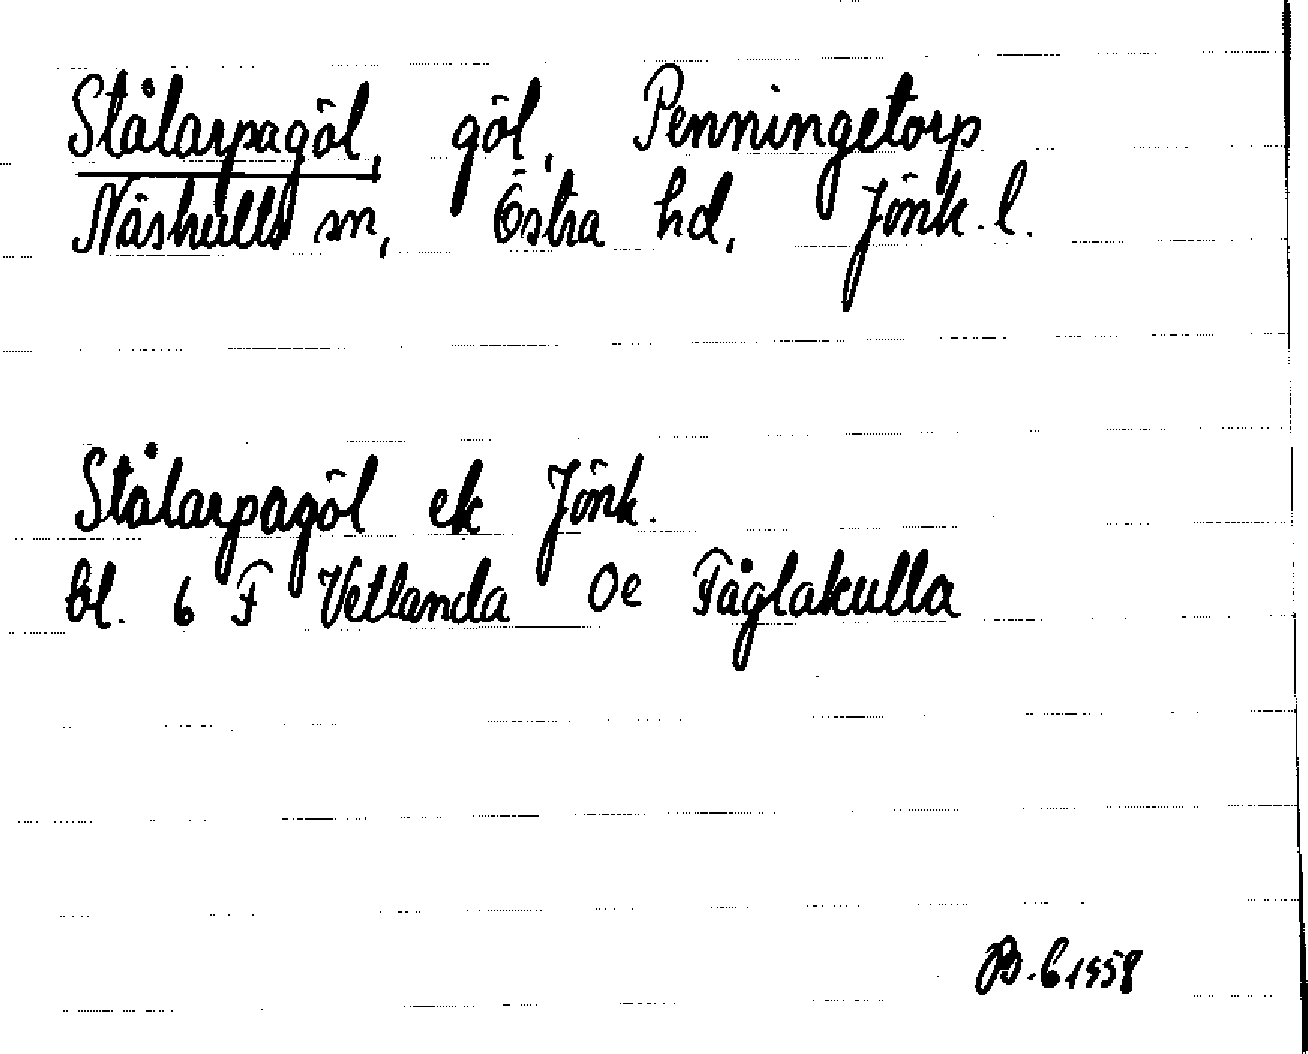 Stålarpagöl, göl, Penningetorp
Näshults sn, Östra hd, Jönk. l.
Stålarpagöl ek Jönk.
bl. 6 F Vetlanda 0e Fåglakulla
B. E 1958